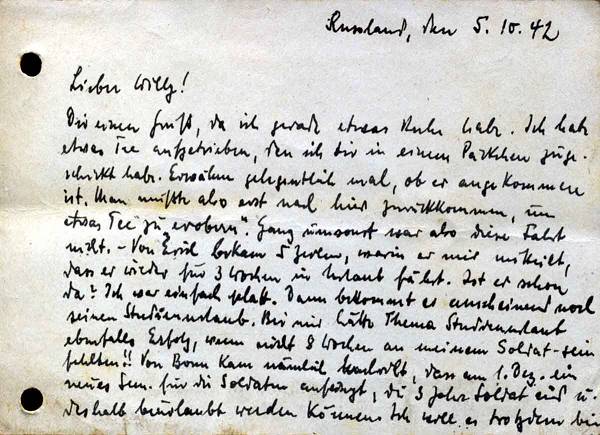 Russland, den 5.10.42
Lieber Willy!
Dir einen Gruß, da ich gerade etwas Ruhe habe. Ich habe
etwas Tee aufgetrieben, den ich dir in einem Päckchen zuge-
schickt habe. Erwähne gelegentlich mal, ob er angekommen
ist. Man müßte also erst nach hier zurückkommen, um
etwas Tee zu „erobern". Ganz umsonst war also diese Fahrt
nicht. – Von Erich bekam 5 Zeilen, worin er mir mitteilt,
dass er wieder für 3 Wochen in Urlaub fährt. Ist er schon
da? Ich war einfach platt. Dann bekommt er anscheinend noch
seinen Studienurlaub. Bei mir hätte Thema Studienurlaub
ebenfalls Erfolg, wenn nicht 8 Wochen an meinem Soldat-sein
fehlten!! Von Bonn kam nämlich Nachricht, dass am 1. Dez. ein
neues Sem. für die Soldaten anfängt, die 3 Jahre Soldat sind u.
deshalb beurlaubt werden können. Ich will es trotzdem bei